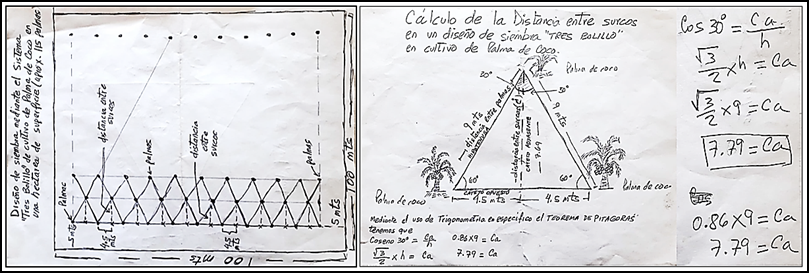 Diseño de siembra mediante el Sistema
Tres Bolillo de cultivo de Palma de Coco en
una hectarea de superficie (aprox. 115 palmas
distancia entre
surcos
palmas
distancia
entre
surcos
palmas
Palmas
5 mts
4.5
mts
4.5
mts
5 mts
100 mts
100 mts
Cálculo de la Distancia entre surcos
en un diseño de siembra "TRES BOLILLO"
en cultivo de Palma de Coco.
Palma de coco
30°
30°
9 mts
distancia entre palmas
9 mts
distancia entre surcos
CATETO ADYACENTE
7.69
60°
60°
CATETO OPUESTO
4.5 mts
4.5 mts
Palma de coco
Palma de coco
Mediante el uso de Trigonometria en especifico el TEOREMA DE PITAGORAS
tenemos que
Coseno 30° = Ca/h
0.86x9 = Ca
√3/2 x h = Ca
7.79 = Ca
Cos 30° = Ca/h
√3/2 x h = Ca
√3/2 x 9 = Ca
7.79 = Ca
0.86 x 9 = Ca
7.79 = Ca